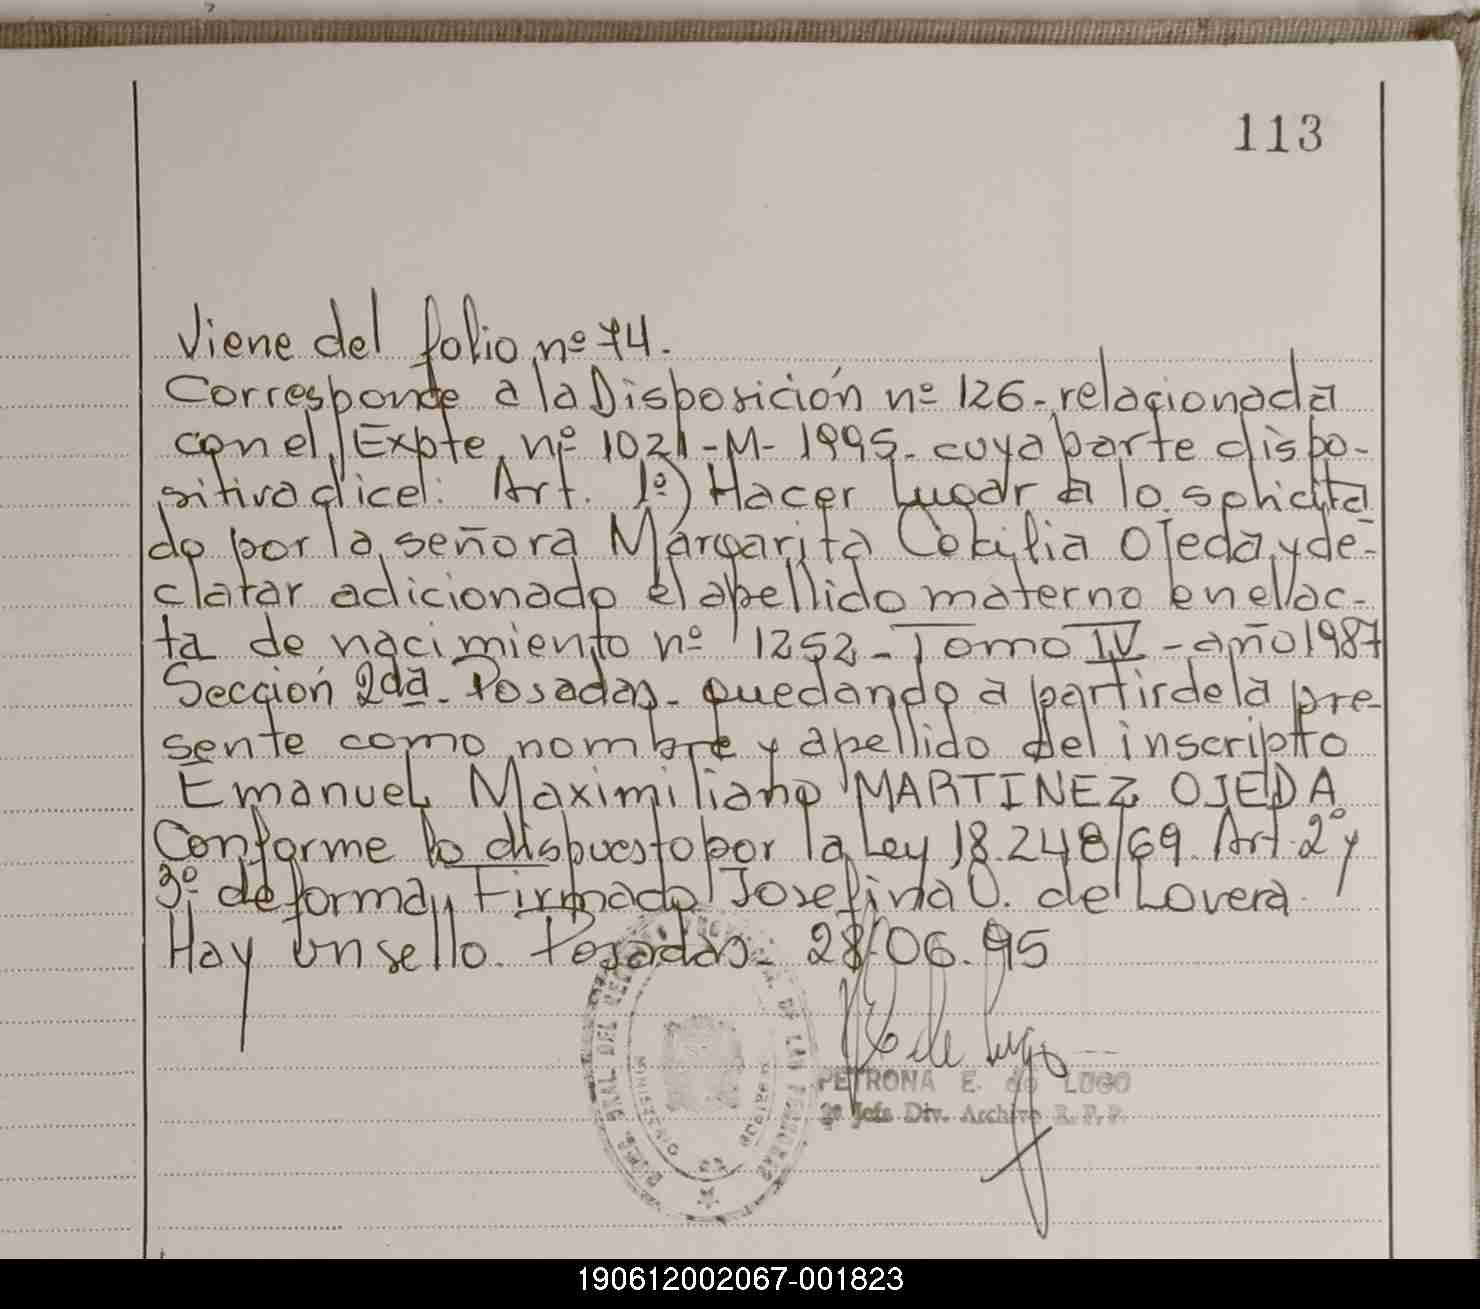 113
Viene del folio nº 74.
Corresponde a la Disposición nº 126-relacionada
con el Expte nº 1021-M-1995. cuya parte dispo-
sitiva dice: Art. 1º) Hacer lugar a lo solicita
do por la señora Margarita Ojeda y de-
clarar adicionado el apellido materno en el ac-
ta de nacimiento nº 1252-Tomo IV-año 1987
Sección 2da. Posadas. quedando a partir de la pre-
sente como nombre y apellido del inscripto
Emanuel Maximiliano MARTINEZ OJEDA
Conforme lo dispuesto por la Ley 18.248/69. Art. 2º y
3º de forma,, Firmado Josefina O. de Lovera.
Hay un sello. Posadas- 28/06.95
PETRONA E. de LUGO
2º Jefe Div. Archivo R. P. P.
190612002067-001823